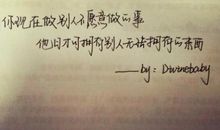 你现在做别人不愿意做的事
他日才可拥有别人无法拥有的东西
——by: Divinebaby